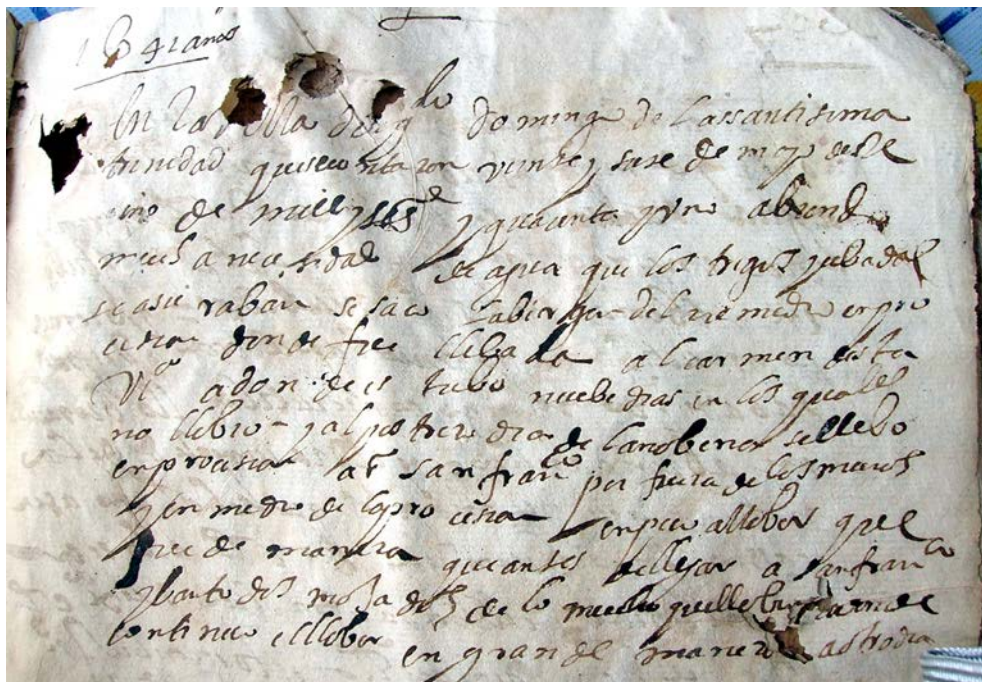 1641 años
En la villa de domingo de lassantisima
trinidad quesecontaron veinte y siete de mayo deste
año de mill y seis y quarenta y uno abiendo
mucha necesidad de agua que los trigos y cebadas
se asuraban se saco la birgen del remedio en pro
cesion donde fue llebada al carmen desta
Vª adonde estubo nuebe dias en los quales
no llobio y al postrero dia de la nobena se llebo
en procesion a sr san franco por fuera de los muros
y en medio de la procesion enpeço a llober que
fue de manera que antes de llegar a san franco
yban todos mojados de lo mucho que llobia
continuo el llober en gran de manera